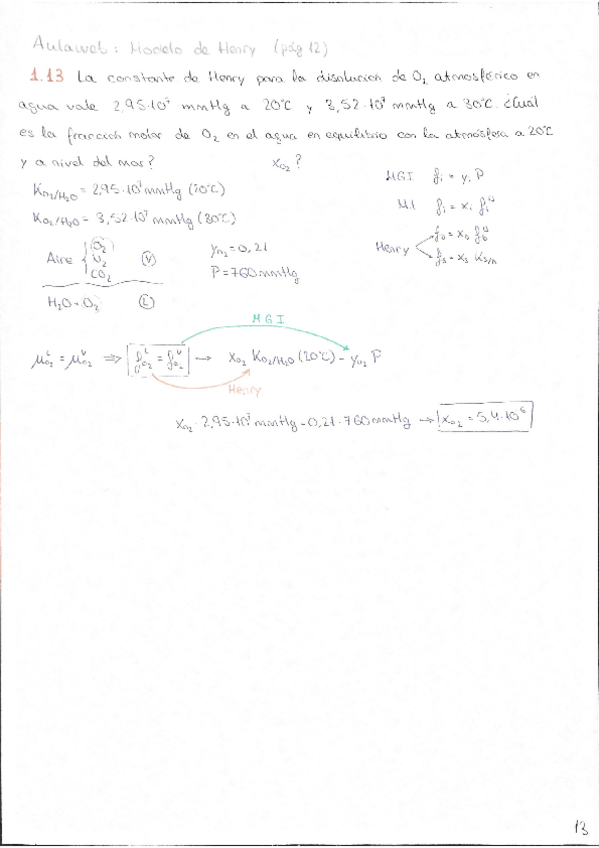 Aulaweb: Modelo de Henry (pág 12)
1.13 La constante de Henry para la disolución de O₂ atmosférico en
agua vale 2,95·10⁷ mmHg a 20℃ y 3,52·10⁷ mmHg a 30℃. ¿Cuál
es la fracción molar de O₂ en el agua en equilibrio con la atmósfera a 20℃
y a nivel del mar? x_O₂?
K_O₂/H₂O = 2,95·10⁷ mmHg (20℃)
K_O₂/H₂O = 3,52·10⁷ mmHg (30℃)
MGI f_i = y_i P
M.I f_i = x_i f_i⁰
Henry
f_D = x_D f_D⁰
f_S = x_S K_S/D
Aire { O₂ N₂ CO₂ (V)
H₂O - O₂ (L)
y_O₂ = 0,21
P = 760 mmHg
MGI
μ_O₂^L = μ_O₂^V ⇒ f_O₂^L = f_O₂^V → x_O₂ K_O₂/H₂O (20℃) = y_O₂ P
Henry
x_O₂ · 2,95·10⁷ mmHg = 0,21 · 760 mmHg → x_O₂ = 5,4·10⁶
13